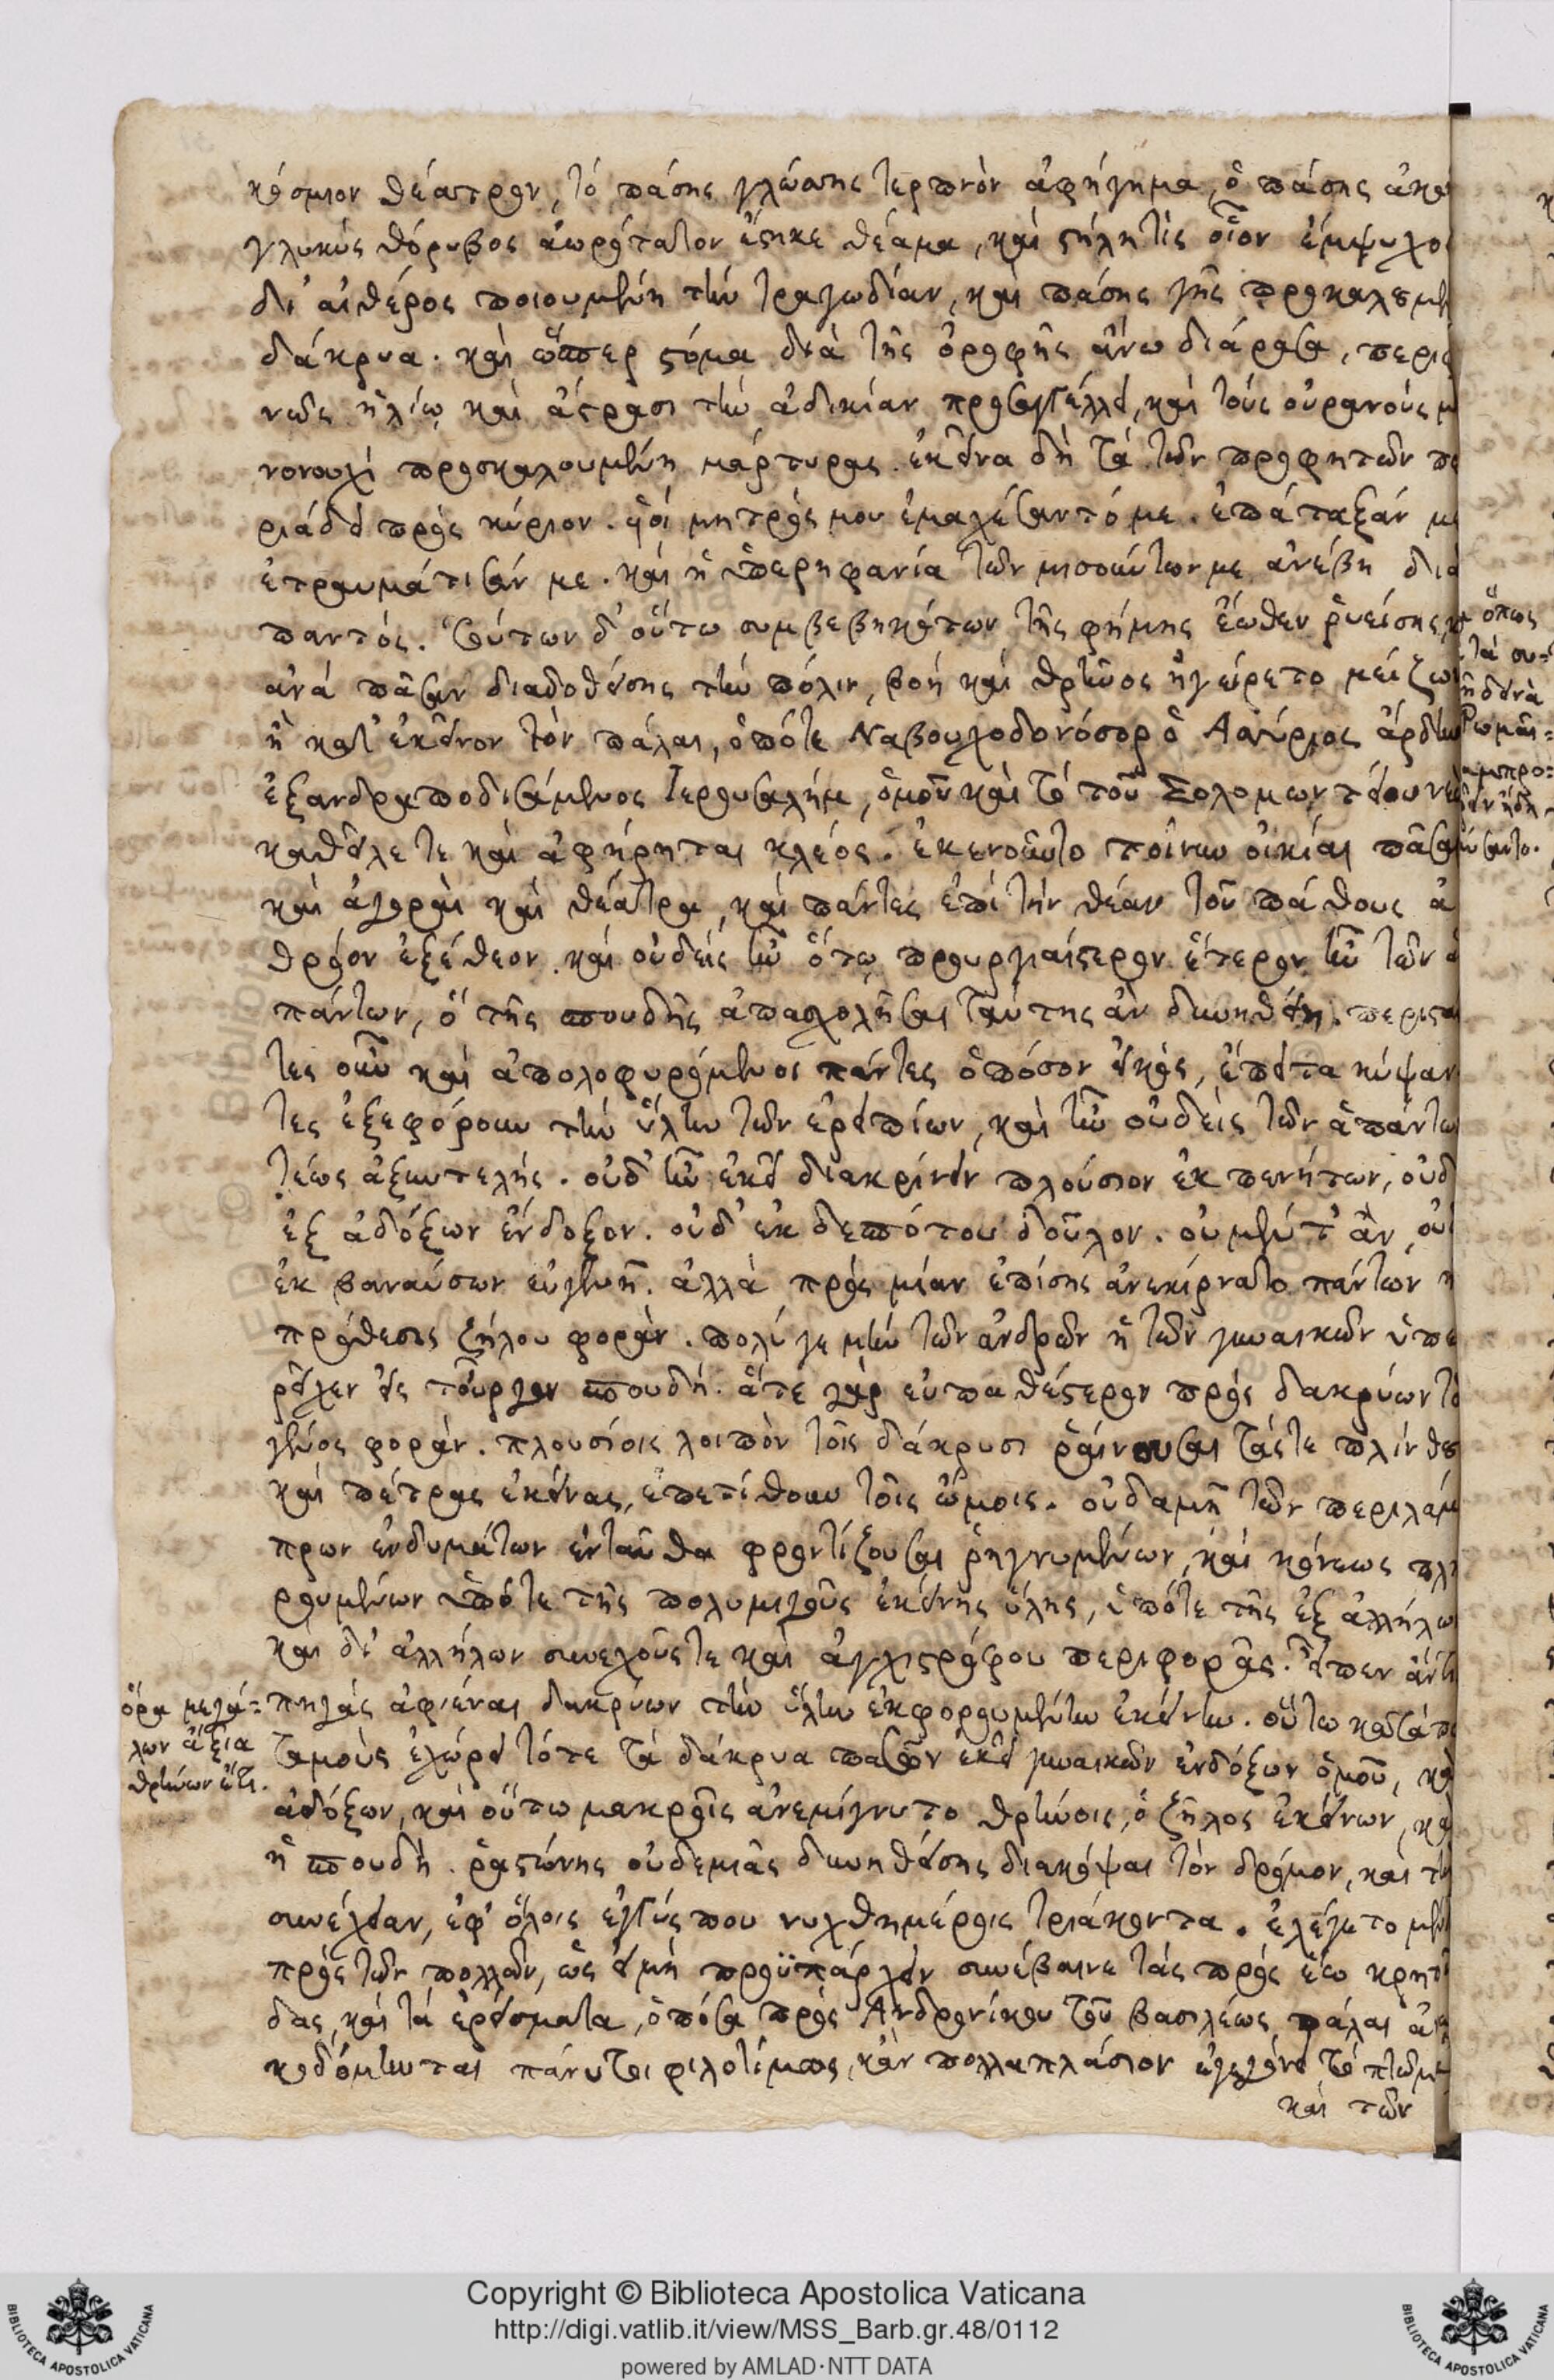 κόσμιον θέατρον, τὸ πάσης γλώσσης τερπνὸν ἀφήγημα, ὁ πάσης ἀκο
γλυκὺς θόρυβος ἀωρότατον ἕστηκε θέαμα, καὶ στήλη τὶς οἷον ἔμψυχο
δι' αἰθέρος ποιουμένη τὴν τραγωδίαν, καὶ πάσης γῆς προκαλουμέν
δάκρυα. καὶ ὥσπερ στόμα διὰ τῆς ὀροφῆς ἄνω διάρασα,
ἡλίω καὶ ἄστρασι τὴν ἀδικίαν προσαγγέλλει, καὶ τοὺς οὐρανοὺς μ
νονουχὶ προσκαλουμένη μάρτυρας. ἐκεῖνα δὴ τὰ τῶν προφητῶν
πρὸς κύριον. υἱοὶ μητρός μου ἐμαχέσαντό με. ἐπάταξάν με
ἐτραυμάτισάν με. καὶ ἡ ὑπερηφανία τῶν μισούντων με ἀνέβη διὰ
παντός. Τούτων δ' οὕτω συμβεβηκότων τῆς φήμης ἕωθεν ῥυείσης
ἀνὰ πᾶσαν διαδοθείσης τὴν πόλιν, βοὴ καὶ θρῆνος ἠγείρετο μείζων
ἢ κατ' ἐκεῖνον τὸν πάλαι, ὁπότε Ναβουχοδονόσορ ὁ Ἀσσύριος ἄρδην
ἐξανδραποδισάμενος Ἱερουσαλήμ, ὁμοῦ καὶ τὸ τοῦ Σολομῶντος
καθεῖλε τε καὶ ἀφήρηται κλέος. ἐκενοῦντο τοίνυν οἰκίαι πᾶσαι
καὶ ἀγοραὶ καὶ θέατρα, καὶ πάντες ἐπὶ τὴν θέαν τοῦ πάθους ἀ
θρόον ἐξέθεον. καὶ οὐδεὶς ἦν ὅτω προυργιαίτερον ἕτερον ἦν τῶν
πάντων, ὃ τῆς σπουδῆς ἀπασχολῆσαι ταύτης ἂν δυνηθείη. περιστάν
τες οὖν καὶ ἀπολοφυρόμενοι πάντες ὁπόσον εἰκός, ἔπειτα κύψαν
τες ἐξεφόρουν τὴν ὕλην τῶν ἐρειπίων, καὶ ἦν οὐδεὶς τῶν ἁπάντων
τέως ἀξυντελής. οὐδ' ἦν ἐκεῖ διακρίνειν πλούσιον ἐκ πενήτων, οὐδ
ἐξ ἀδόξων ἔνδοξον. οὐδ' ἐκ δεσπότου δοῦλον. οὐ μέντ' ἂν, οὐδ
ἐκ βαναύσων εὐγενῆ. ἀλλὰ πρὸς μίαν ἐπίσης ἀνεκίρνατο πάντων ἡ
πρόθεσις ζήλου φοράν. πολύ γε μὴν τῶν ἀνδρῶν ἡ τῶν γυναικῶν ὑπε
ρεῖχεν εἰς τοὖργον σπουδή. ἅτε γὰρ εὐπαθέστερον πρὸς δακρύων τὸ
γένος φοράν. πλουσίοις λοιπὸν τοῖς δάκρυσι ῥαίνουσαι τάς τε πλίνθους
καὶ πέτρας ἐκείνας, ἐπετίθουν τοῖς ὤμοις. οὐδαμῆ τῶν περιλάμ
πρων ἐνδυμάτων ἐνταῦθα φροντίζουσαι ῥηγνυμένων, καὶ κόνεως πλη
ρουμένων ὑπό τε τῆς πολυμιγοῦς ἐκείνης ὕλης, ὑπό τε τῆς ἐξ ἀλλήλων
καὶ δι' ἀλλήλων συνεχοῦς τε καὶ ἀγχιστρόφου περιφορᾶς. εἶπεν ἄν τις
πηγὰς ἀφιέναι δακρύων τὴν ὕλην ἐκφορουμένην ἐκείνην. οὕτω κατὰ πο
ταμοὺς ἐχώρει τότε τὰ δάκρυα πασῶν ἐκεῖ γυναικῶν ἐνδόξων ὁμοῦ, καὶ
ἀδόξων, καὶ οὕτω μακροῖς ἀνεμίγνυτο θρήνοις, ὁ ζῆλος ἐκείνων, καὶ
ἡ σπουδή. ῥαστώνης οὐδεμιᾶς δυνηθείσης διακόψαι τὸν δρόμον, καὶ τὴν
συνέχειαν, ἐφ' ὅλοις ἐγγύς που νυχθημέροις τριάκοντα. ἐλέγετο μὲν
πρὸς τῶν πολλῶν, ὡς εἰ μὴ προϋπάρχειν συνέβαινε τὰς πρὸς ἕω κρηπῖ
δας, καὶ τὰ ἐρείσματα, ὁπόσα πρὸς Ἀνδρονίκου τοῦ βασιλέως πάλαι ἀν
κοδόμηνται πάνυ τοι φιλοτίμως, κἂν πολλαπλάσιον ἐγεγόνει τὸ πτῶμα
καὶ τῶν
ὅρα μεγά=
λων ἄξια
θρήνων ἔτι.
ὅπως